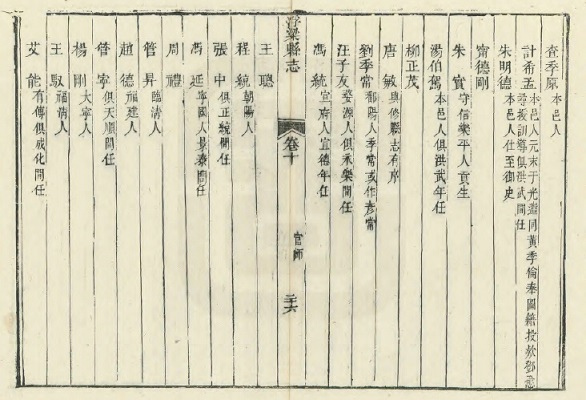 查季原 本邑人
計希孟 本邑人元末于光遣同黃季倫奉圖籍投欵鄧愈
尋授訓導俱洪武間任
朱明德 本邑人仕至御史
甯德剛
朱實 守信樂平人貢生
湯伯篤 本邑人俱洪武年任
柳正茂
唐敏 與修縣志有序
劉季常 鄱陽人季常或作彥常
汪子友 婺源人俱永樂間任
馮統 宜府人宣德年任
浮梁縣志
卷十
官師
三六
王聰
程統 朝陽人
張中 俱正統間任
馮延 寧國人景泰間任
周禮
管昇 臨清人
趙德 福建人
管寧 俱天順間任
楊剛 大寧人
王馭 福清人
艾能 有傳俱成化間任